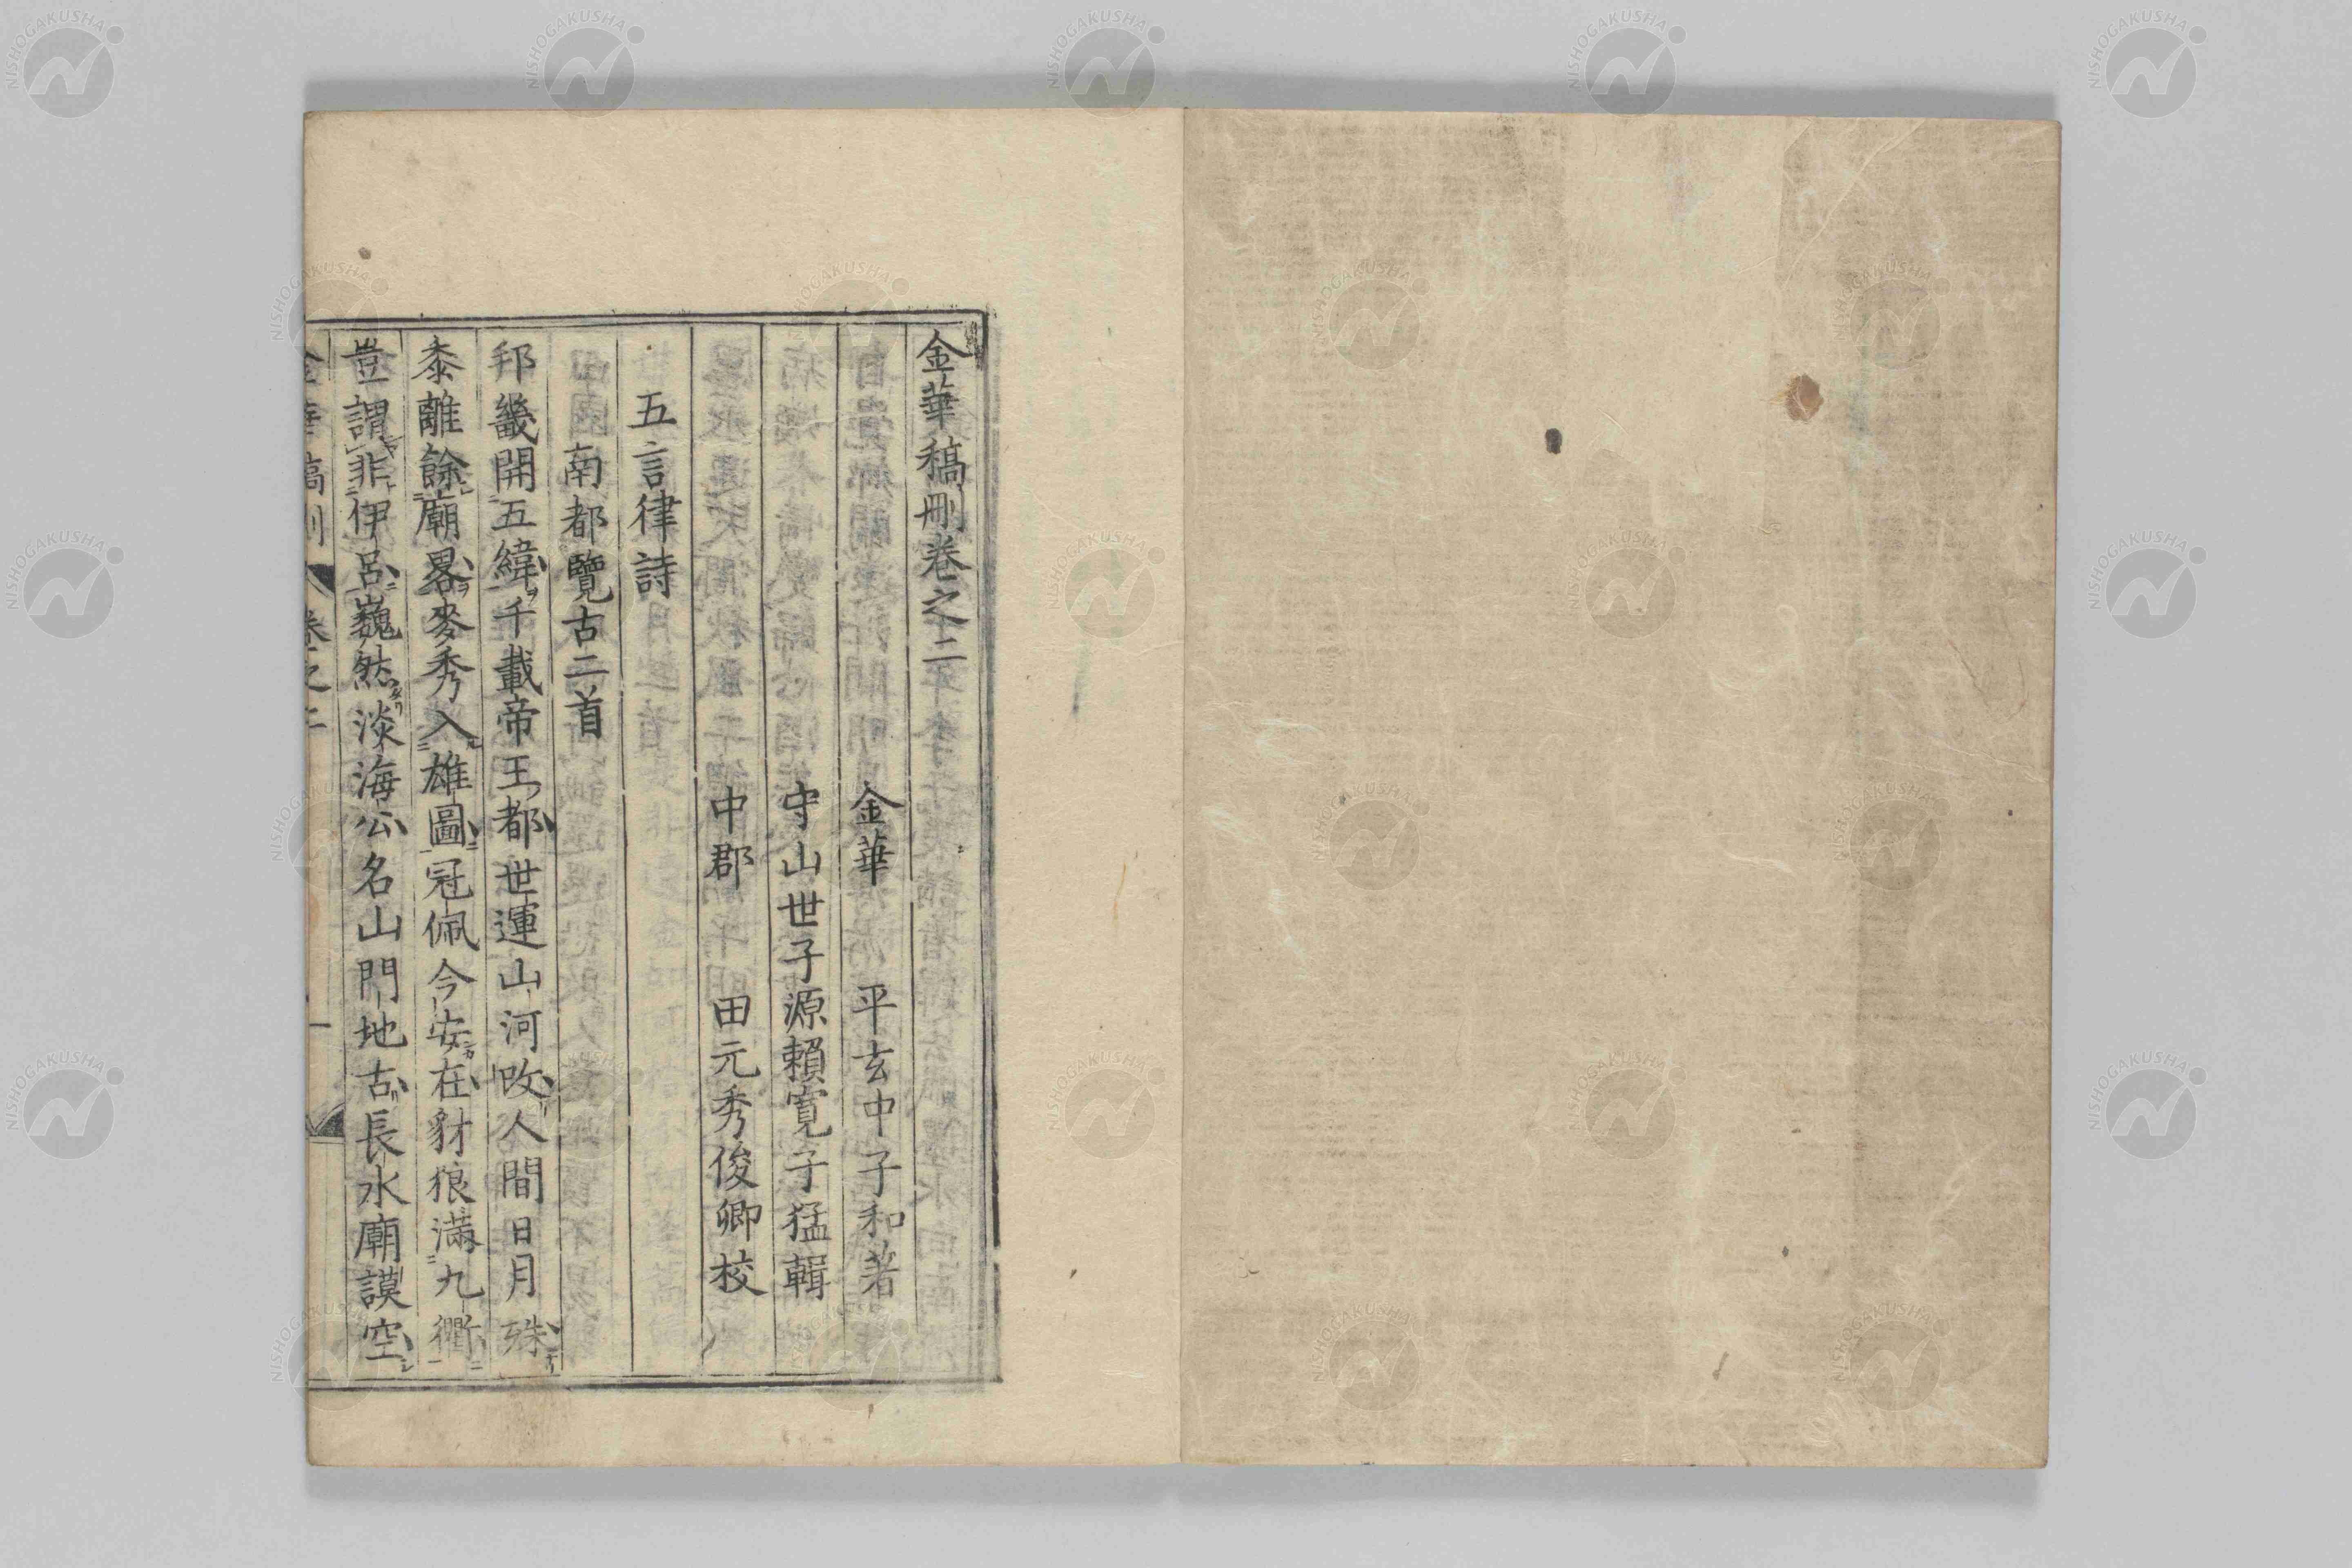 金華稿刪卷之二
金華 平玄中子和著
守山世子源賴寬子猛輯
中郡 田元秀俊卿校
五言律詩
南都覽古二首
邦畿開五緯千載帝王都世運山河改人間日月殊
黍離餘廟畧麥秀入雄圖冠佩今安在豺狼滿九衢
豈謂非伊呂巍然淡海公名山門地古長水廟謨空
金華稿刪 卷之二 一
NISHOGAKUSHA